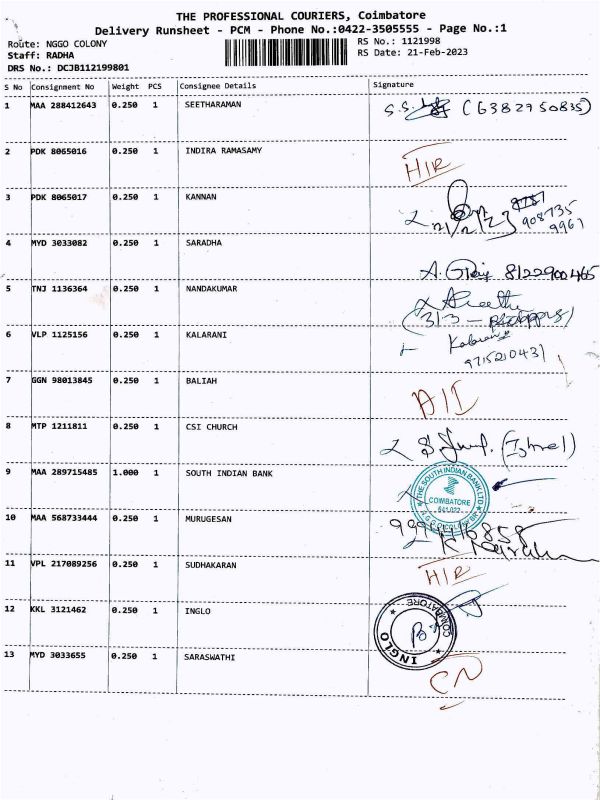 THE PROFESSIONAL COURIERS, Coimbatore
Delivery Runsheet - PCM - Phone No.:0422-3505555 - Page No.:1
Route: NGGO COLONY
Staff: RADHA
DRS No.: DCJB112199801
RS No.: 1121998
RS Date: 21-Feb-2023
S No Consignment No Weight PCS Consignee Details Signature
1 MAA 288412643 0.250 1 SEETHARAMAN S.S. (6382750835)
2 PDK 8065016 0.250 1 INDIRA RAMASAMY HIR
3 PDK 8065017 0.250 1 KANNAN 21/2/23 908735
9961
4 MYD 3033082 0.250 1 SARADHA A. 8122900465
5 TNJ 1136364 0.250 1 NANDAKUMAR
313 -
6 VLP 1125156 0.250 1 KALARANI Kalarani
9715210431
7 GGN 98013845 0.250 1 BALIAH
8 MTP 1211811 0.250 1 CSI CHURCH
9 MAA 289715485 1.000 1 SOUTH INDIAN BANK THE SOUTH INDIAN BANK LTD
COIMBATORE
641 022
10 MAA 568733444 0.250 1 MURUGESAN
11 VPL 217089256 0.250 1 SUDHAKARAN HIR
12 KKL 3121462 0.250 1 INGLO COIMBATORE
INGLO
13 MYD 3033655 0.250 1 SARASWATHI CN